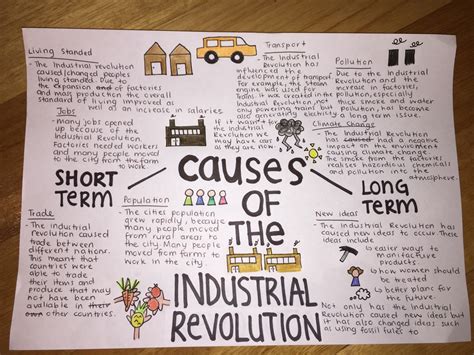 Living Standed
- The Industrial revolution
caused/changed peoples
living standed. Due to
the expansion and of factories
and mass production the overall
standard of living improved as
well as an increase in salaries
Transport
- The Industrial
Revolution has
influenced the
development of transport.
For example, the steam
engine was used for
trains, it was created in the
Industrial Revolution, not
only powering trains but
also generating electricity
If it wasn't for
the industrial
Revolution we
may have have
cars as they are now.
Pollution
Due to the Industrial
Revolution and the
increase in factories,
pollution, especially
thick smoke and water
Pollution, has become
a long term issue.
Jobs
- Many jobs opened
up because of the
Industrial Revolution.
Factories needed workers
and many people moved
to the city from the farm
to work.
Climate Change
- The Industrial Revolution
caused had a negative
impact on the environment
causing climate change.
The smoke from the factories
realises hazardious chemicals
and pollution into the
atmosphere.
causes
OF
THE
INDUSTRIAL
REVOLUTION
SHORT
TERM
LONG
TERM
Population
- The cities population
grew rapidly, because
many people moved
from rural areas to
the city. Many people
moved from farms to
work in the city.
Trade
- The industrial
revolution caused
trade between
different nations.
This meant that
countries were
able to trade
their items and
produce that may
not have been
available in their own other countries.
New ideas
- The Industrial Revolution has
caused new ideas to occur. These
ideas include
easier ways to
manufacture
products.
how women should
be treated
better plans for
the future.
Not only has the Industrial
Revolution caused new ideas but
it has also changed ideas such
as using fossil fules to